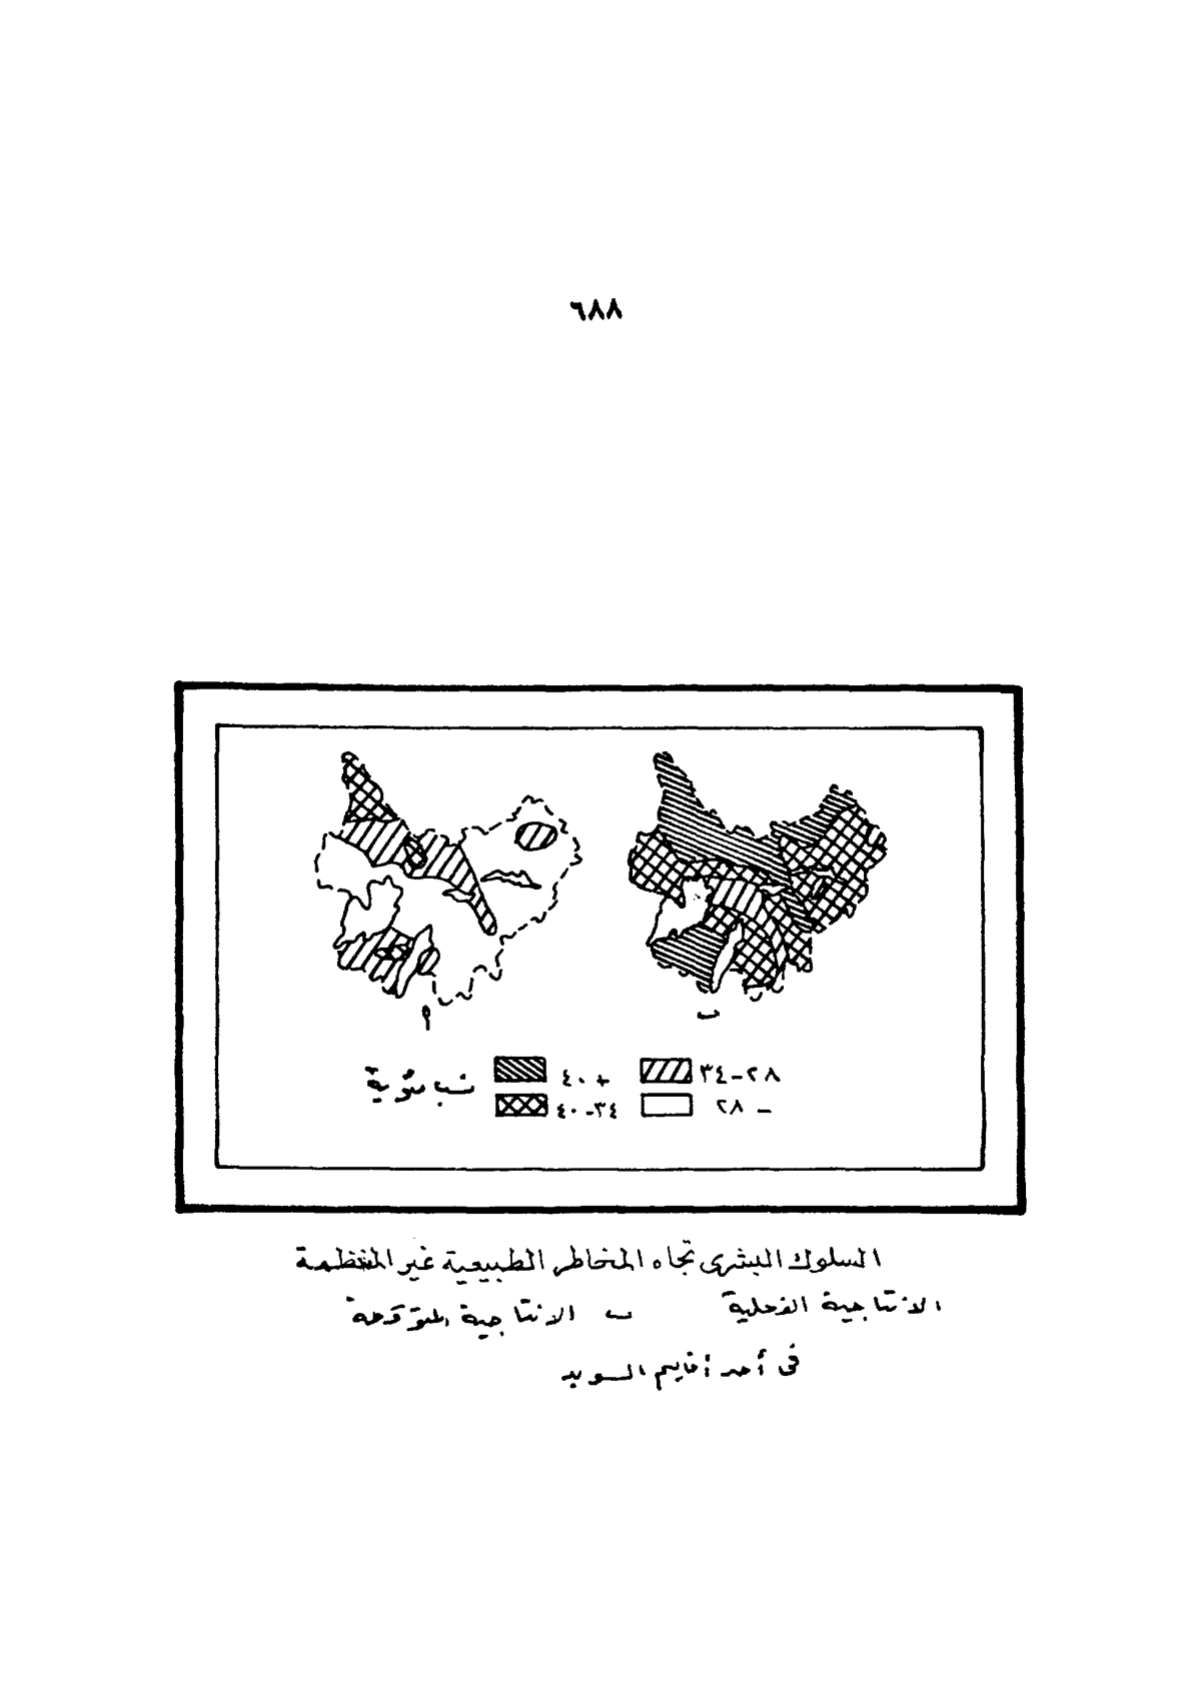 ٦٨٨
أ
ب
نسب مئوية
٤٠ +
٢٨-٣٤
٣٤-٤٠
- ٢٨
السلوك البشرى تجاه المخاطر الطبيعية غير المنتظمة
الانتاجية الفعلية ب الانتاجية المتوقعة
فى أحد أقاليم السويد